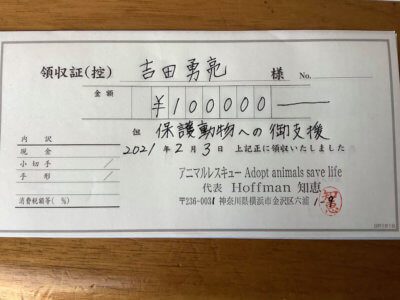 領収証(控) 吉田勇亮 様 No.
金額 ¥100000
但 保護動物への御支援
内訳
2021年2月3日 上記正に領収いたしました
現金
小切手 /
手形 /
消費税額等( %)
アニマルレスキュー Adopt animals save life
代表 Hoffman 知恵
〒236-0031 神奈川県横浜市金沢区六浦